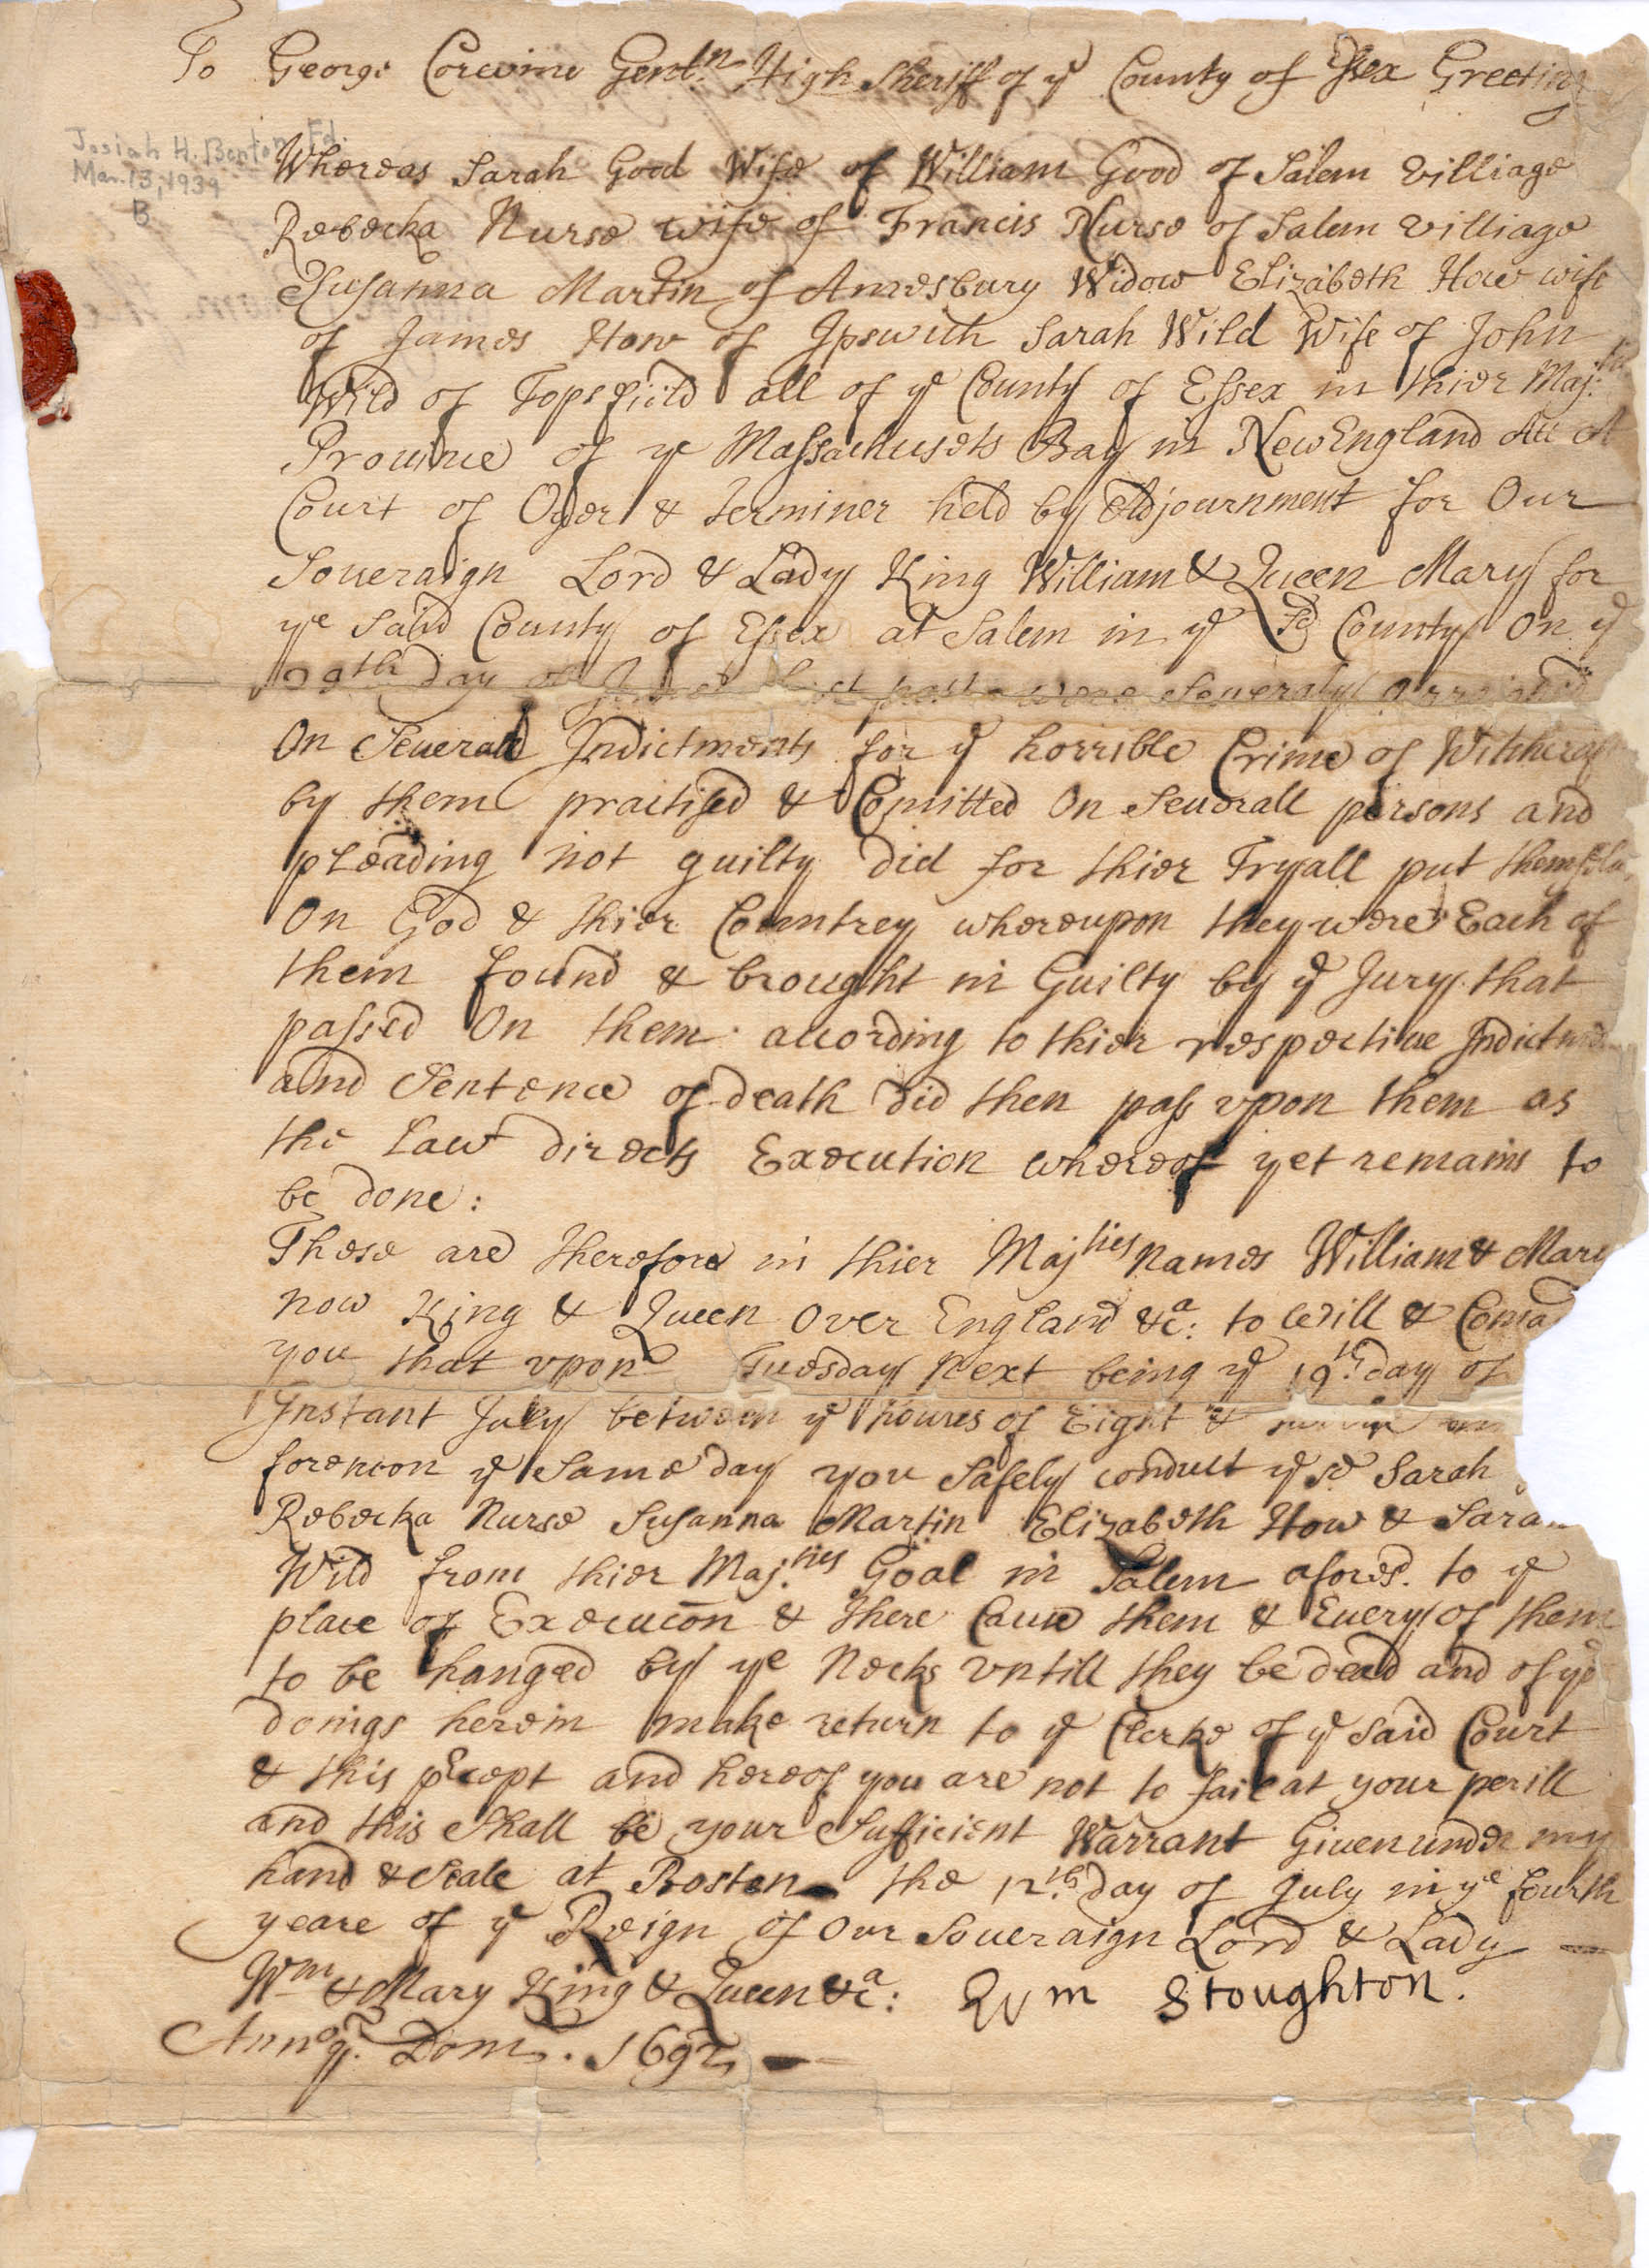 To George Corwine Gentln High Sheriff of ye County of Essex Greeting
Josiah H. Benton Fd.
Mar. 13, 1939
B
Whereas Sarah Good Wife of William Good of Salem Villiage
Rebecka Nurse wife of Francis Nurse of Salem Villiage
Susanna Martin of Amesbury Widow Elizabeth How wife
of James How of Ipswich Sarah Wild Wife of John
Wild of Topsfield all of ye County of Essex in thier Maj:ties
Province of ye Massachusets Bay in New England Att A
Court of Oyer & Terminer held by Adjournment for Our
Soueraign Lord & Lady King William & Queen Mary for
ye Said County of Essex at Salem in ye Sd County On ye
29th day of June last past were Seueraly Arraigned
On Seuerall Indictments for ye horrible Crime of Witchcraft
by them practised & Comitted On Seuerall persons and
pleading not guilty did for thier Tryall put themselu
On God & thier Countrey whereupon they were Each of
them found & brought in Guilty by ye Jury that
passed On them according to thier respective Indictm
and Sentence of death did then pass vpon them as
the Law directs Execution whereof yet remains to
be done:
These are therefore in thier Majties names William & Mary
now King & Queen over England &ca: to Will & Coman
you that vpon Tuesday next being ye 19th day of
Instant July between ye houres of Eight &
forenoon ye same day you Safely conduct ye sd Sarah
Rebecka Nurse Susanna Martin Elizabeth How & Sarah
Wild from thier Maj:ties Goal in Salem afoesd. to ye
place of Execucōn & there Cause them & Euery of them
to be hanged by ye Necks vntill they be dead and of yor
doings herein make return to ye Clerke of ye said Court
& this precept and hereof you are not to fail at your perill
and this Shall be your Sufficient Warrant Giuen under my
hand & Seale at Boston the 12th day of July in ye fourth
yeare of ye Reign of Our Soueraign Lord & Lady
Wm & Mary King & Queen &ca: Wm Stoughton.
Annoq. Dom. 1692